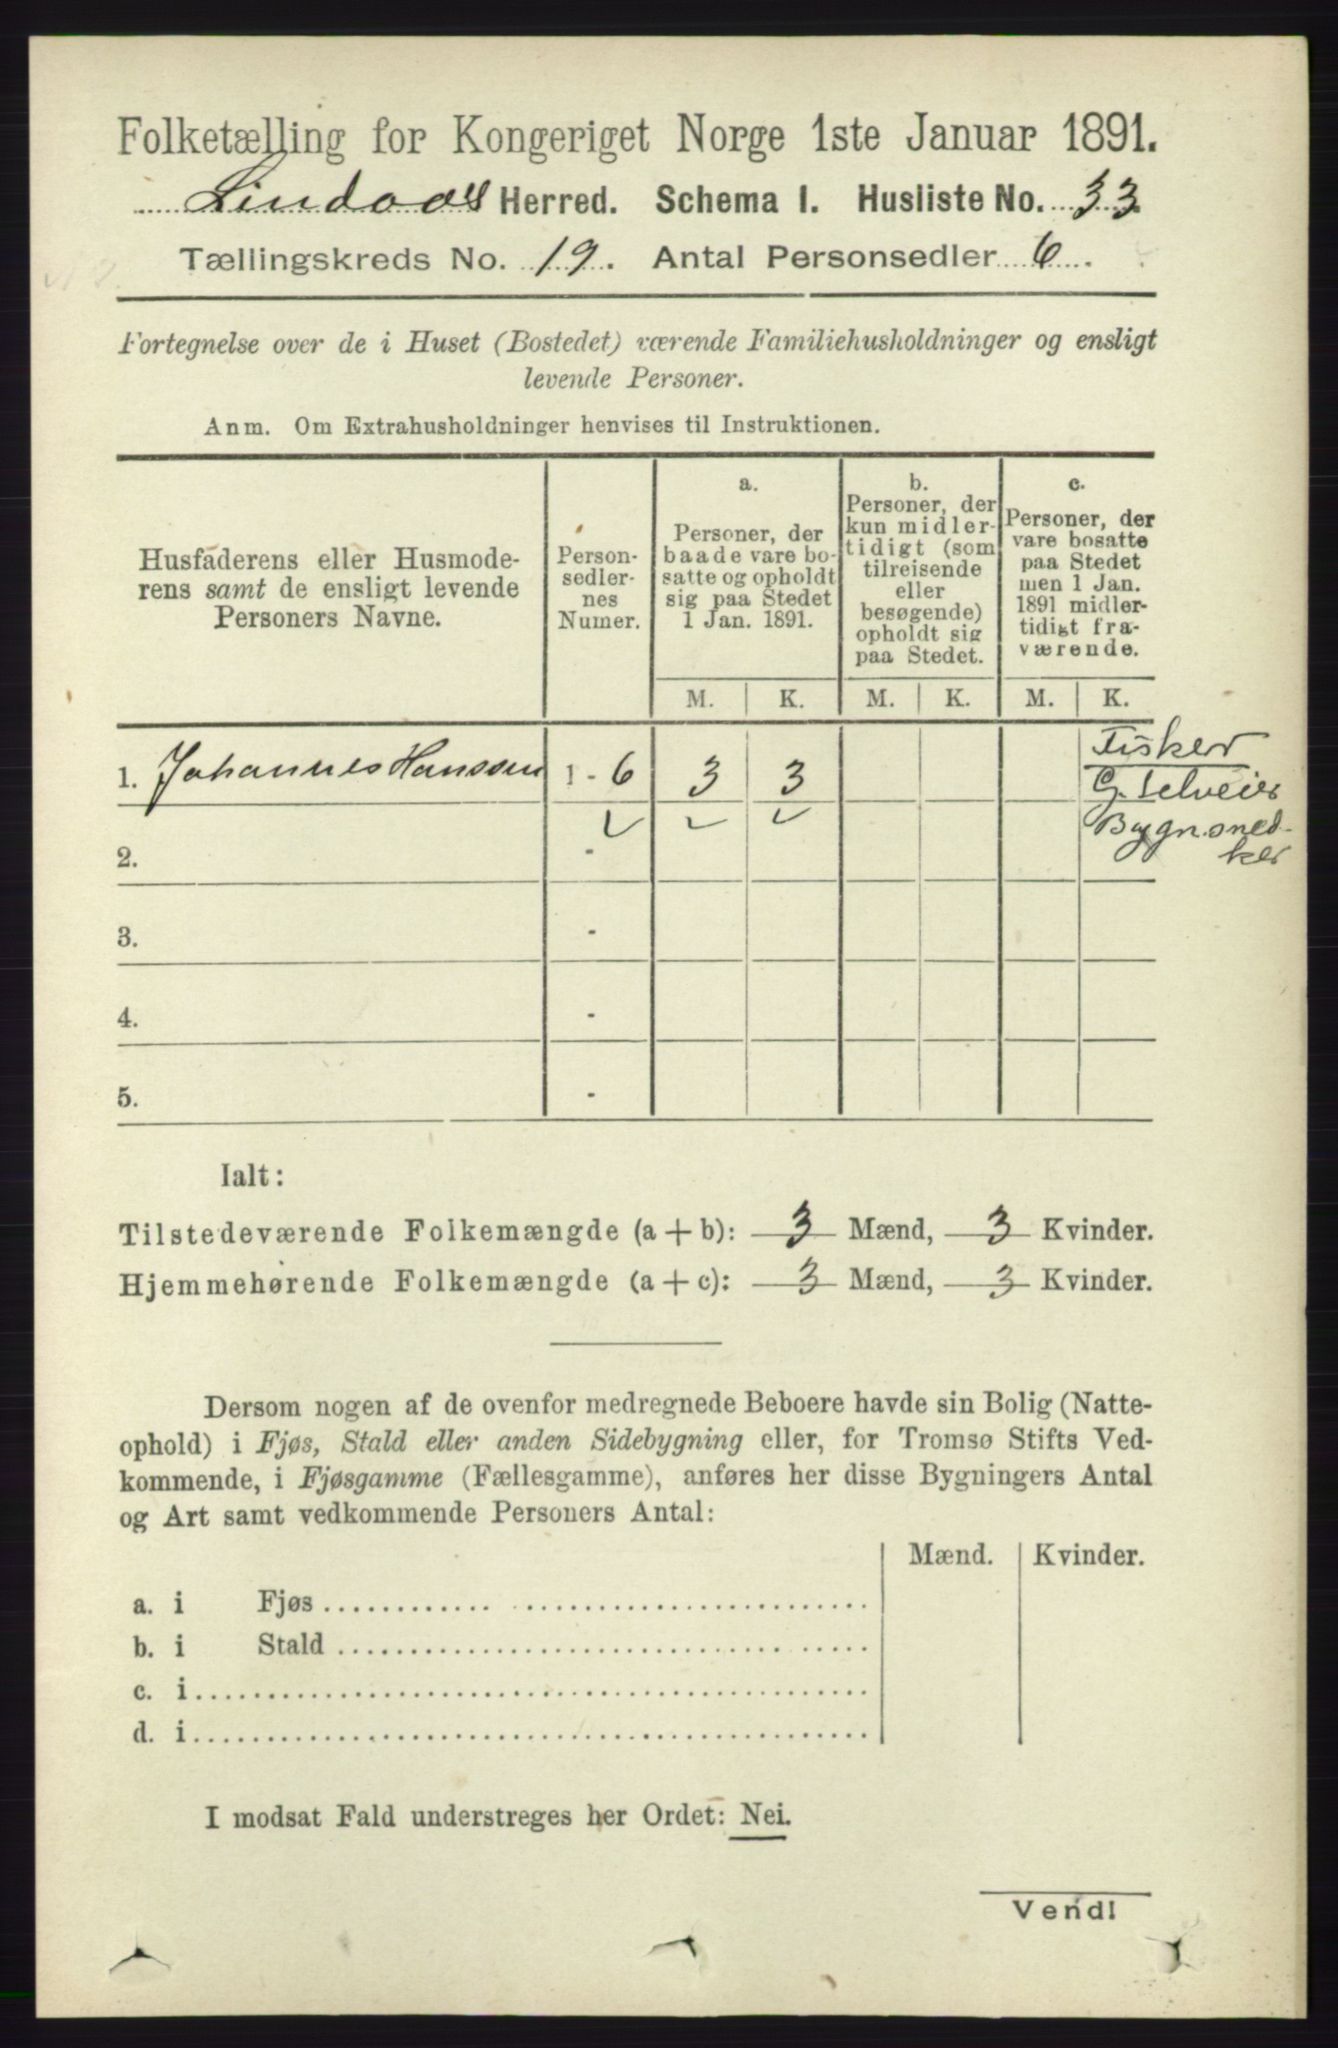 Folketælling for Kongeriget Norge 1ste Januar 1891.
Lindaas Herred. Schema I. Husliste No. 33
Tællingskreds No. 19. Antal Personsedler 6.
Fortegnelse over de i Huset (Bostedet) værende Familiehusholdninger og ensligt
levende Personer.
Anm. Om Extrahusholdninger henvises til Instruktionen.
Husfaderens eller Husmode-
rens samt de ensligt levende
Personers Navne.
Person-
sedler-
nes
Numer.
a.
Personer, der
baade vare bo-
satte og opholdt
sig paa Stedet
1 Jan. 1891.
b.
Personer, der
kun midler-
tidigt (som
tilreisende
eller
besøgende)
opholdt sig
paa Stedet.
c.
Personer, der
vare bosatte
paa Stedet
men 1 Jan.
1891 midler-
tidigt fra-
værende.
M. K. M. K. M. K.
1. Johannes Hanssen 1 - 6 3 3
Fisker
G. Selveier
Bygn.sned-
ker
2. -
3. -
4. -
5. -
Ialt:
Tilstedeværende Folkemængde (a + b): 3 Mænd, 3 Kvinder.
Hjemmehørende Folkemængde (a + c): 3 Mænd, 3 Kvinder.
Dersom nogen af de ovenfor medregnede Beboere havde sin Bolig (Natte-
ophold) i Fjøs, Stald eller anden Sidebygning eller, for Tromsø Stifts Ved-
kommende, i Fjøsgamme (Fællesgamme), anføres her disse Bygningers Antal
og Art samt vedkommende Personers Antal:
Mænd. Kvinder.
a. i Fjøs
b. i Stald
c. i
d. i
I modsat Fald understreges her Ordet: Nei.
Vend!